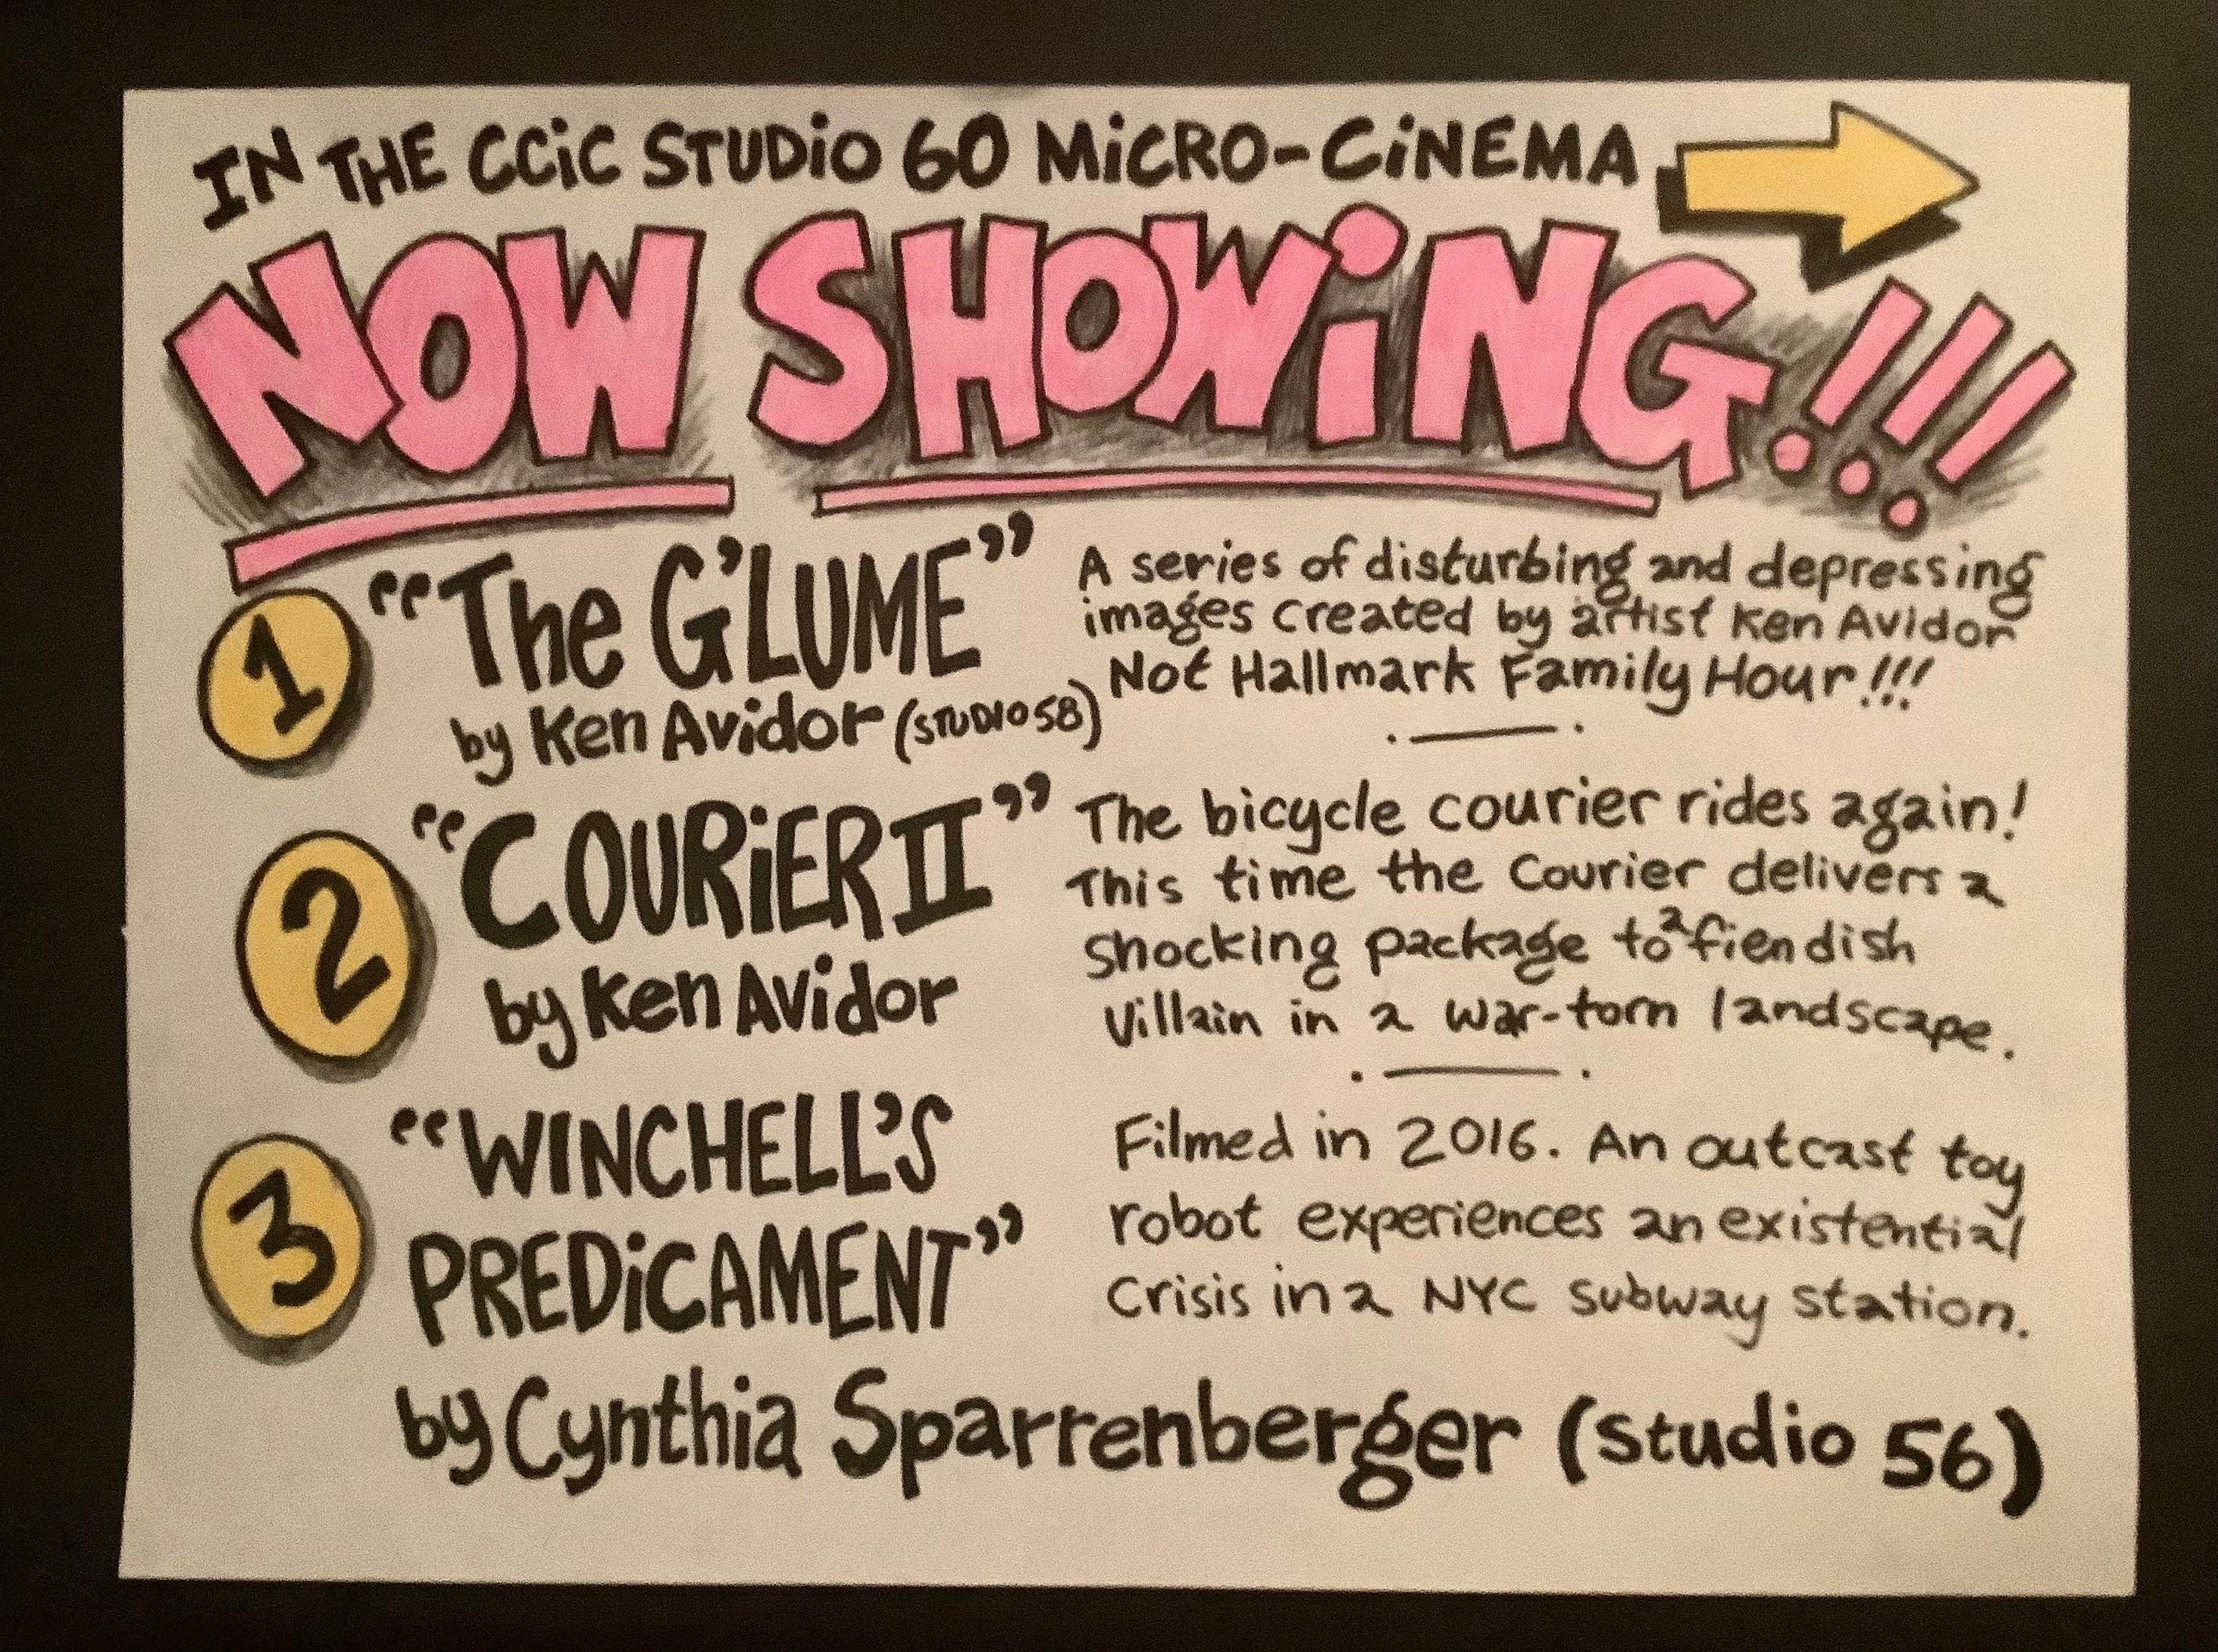 IN THE CCiC STUDiO 60 MiCRO-CiNEMA
NOW SHOWiNG!!!
1
“The G’LUME”
by Ken Avidor (STUDIO 58)
A series of disturbing and depressing
images created by artist Ken Avidor
Not Hallmark Family Hour!!!
2
“COURiER II”
by Ken Avidor
The bicycle courier rides again!
This time the Courier delivers a
Shocking package to a fiendish
Villain in a war-torn landscape.
3
“WINCHELL’S
PREDiCAMENT”
Filmed in 2016. An outcast toy
robot experiences an existential
Crisis in a NYC subway station.
by Cynthia Sparrenberger (Studio 56)